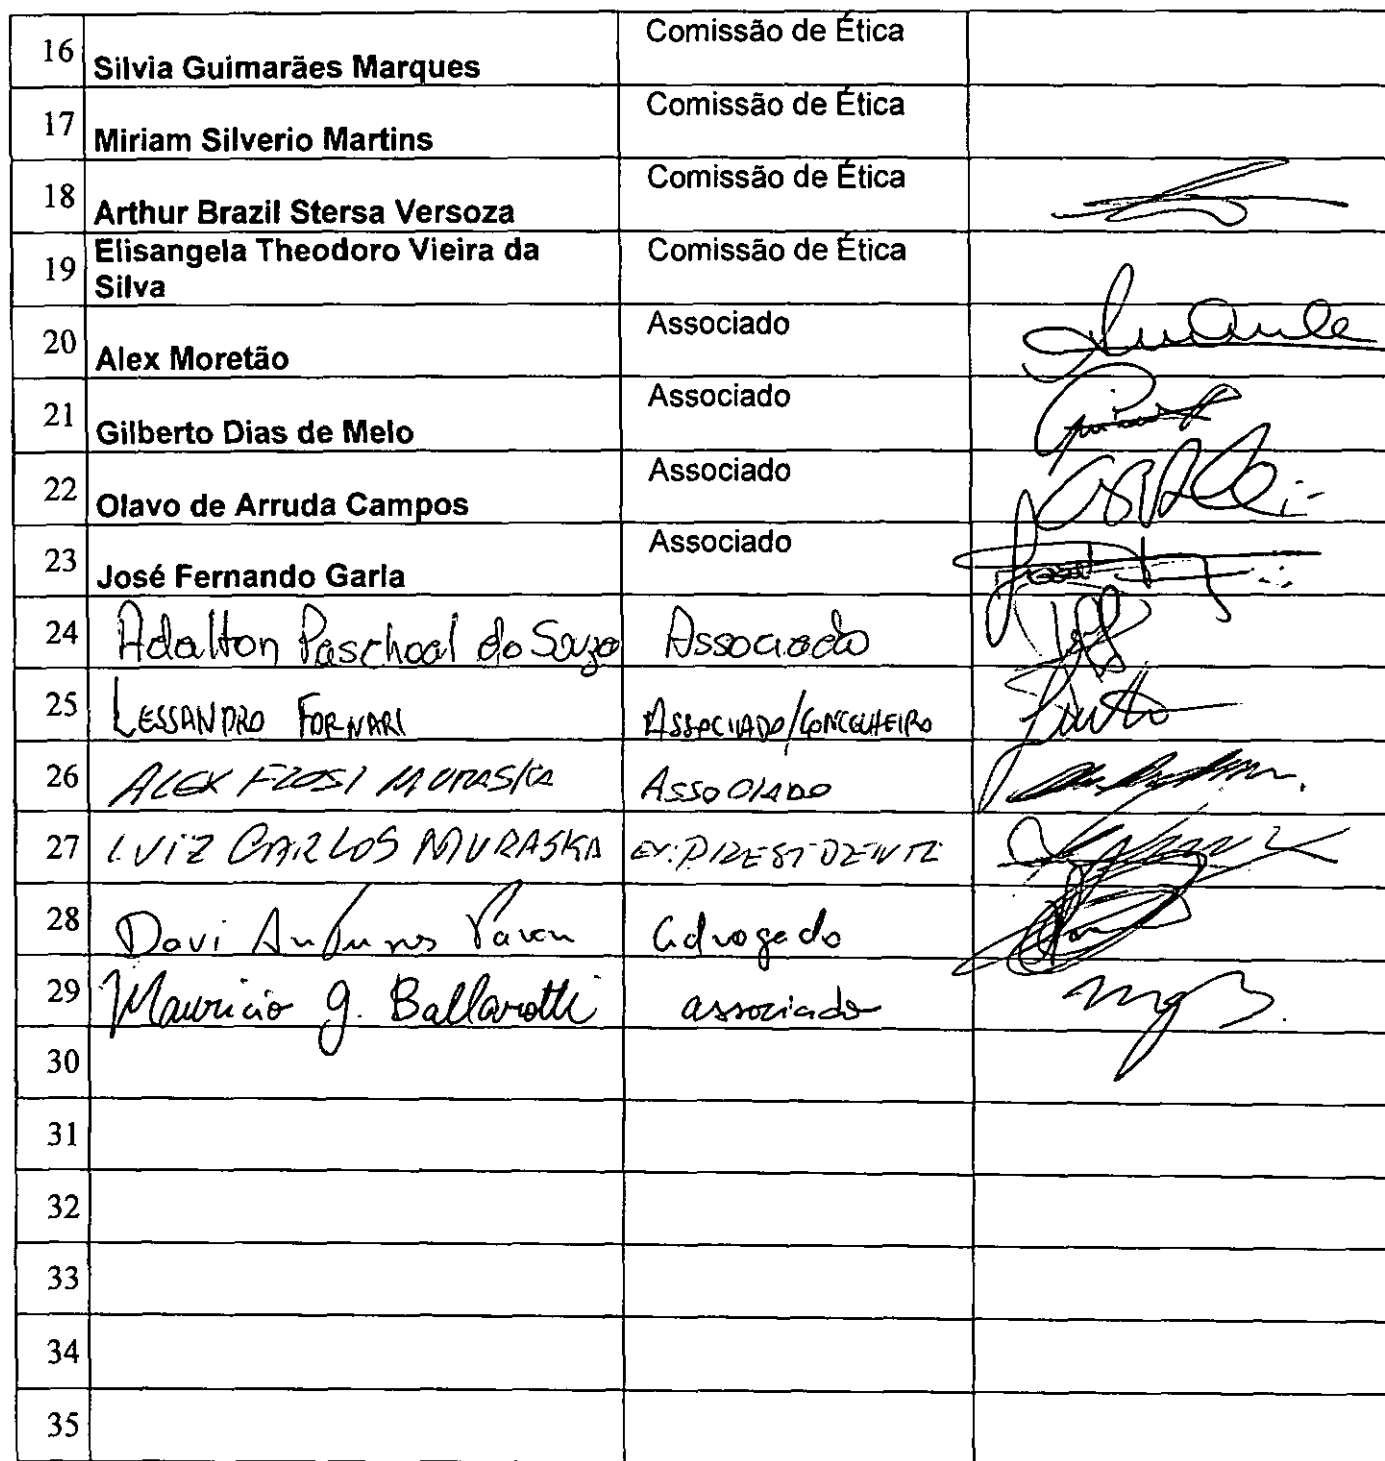 16 Silvia Guimarães Marques Comissão de Ética
17 Miriam Silverio Martins Comissão de Ética
18 Arthur Brazil Stersa Versoza Comissão de Ética
19 Elisangela Theodoro Vieira da Comissão de Ética
Silva
20 Alex Moretão Associado
21 Gilberto Dias de Melo Associado
22 Olavo de Arruda Campos Associado
23 José Fernando Garla Associado
24 Adalton Paschoal do Associado
25 LESSANDRO FORNARI ASSOCIADO/CONCELHEIRO
26 ALEX FLOSI MURASKA ASSOCIADO
27 LUIZ CARLOS MURASKA EX: PRESIDENTE
28 Davi Antunes Pavan Advogado
29 Mauricio G. Ballarotti associado
30
31
32
33
34
35